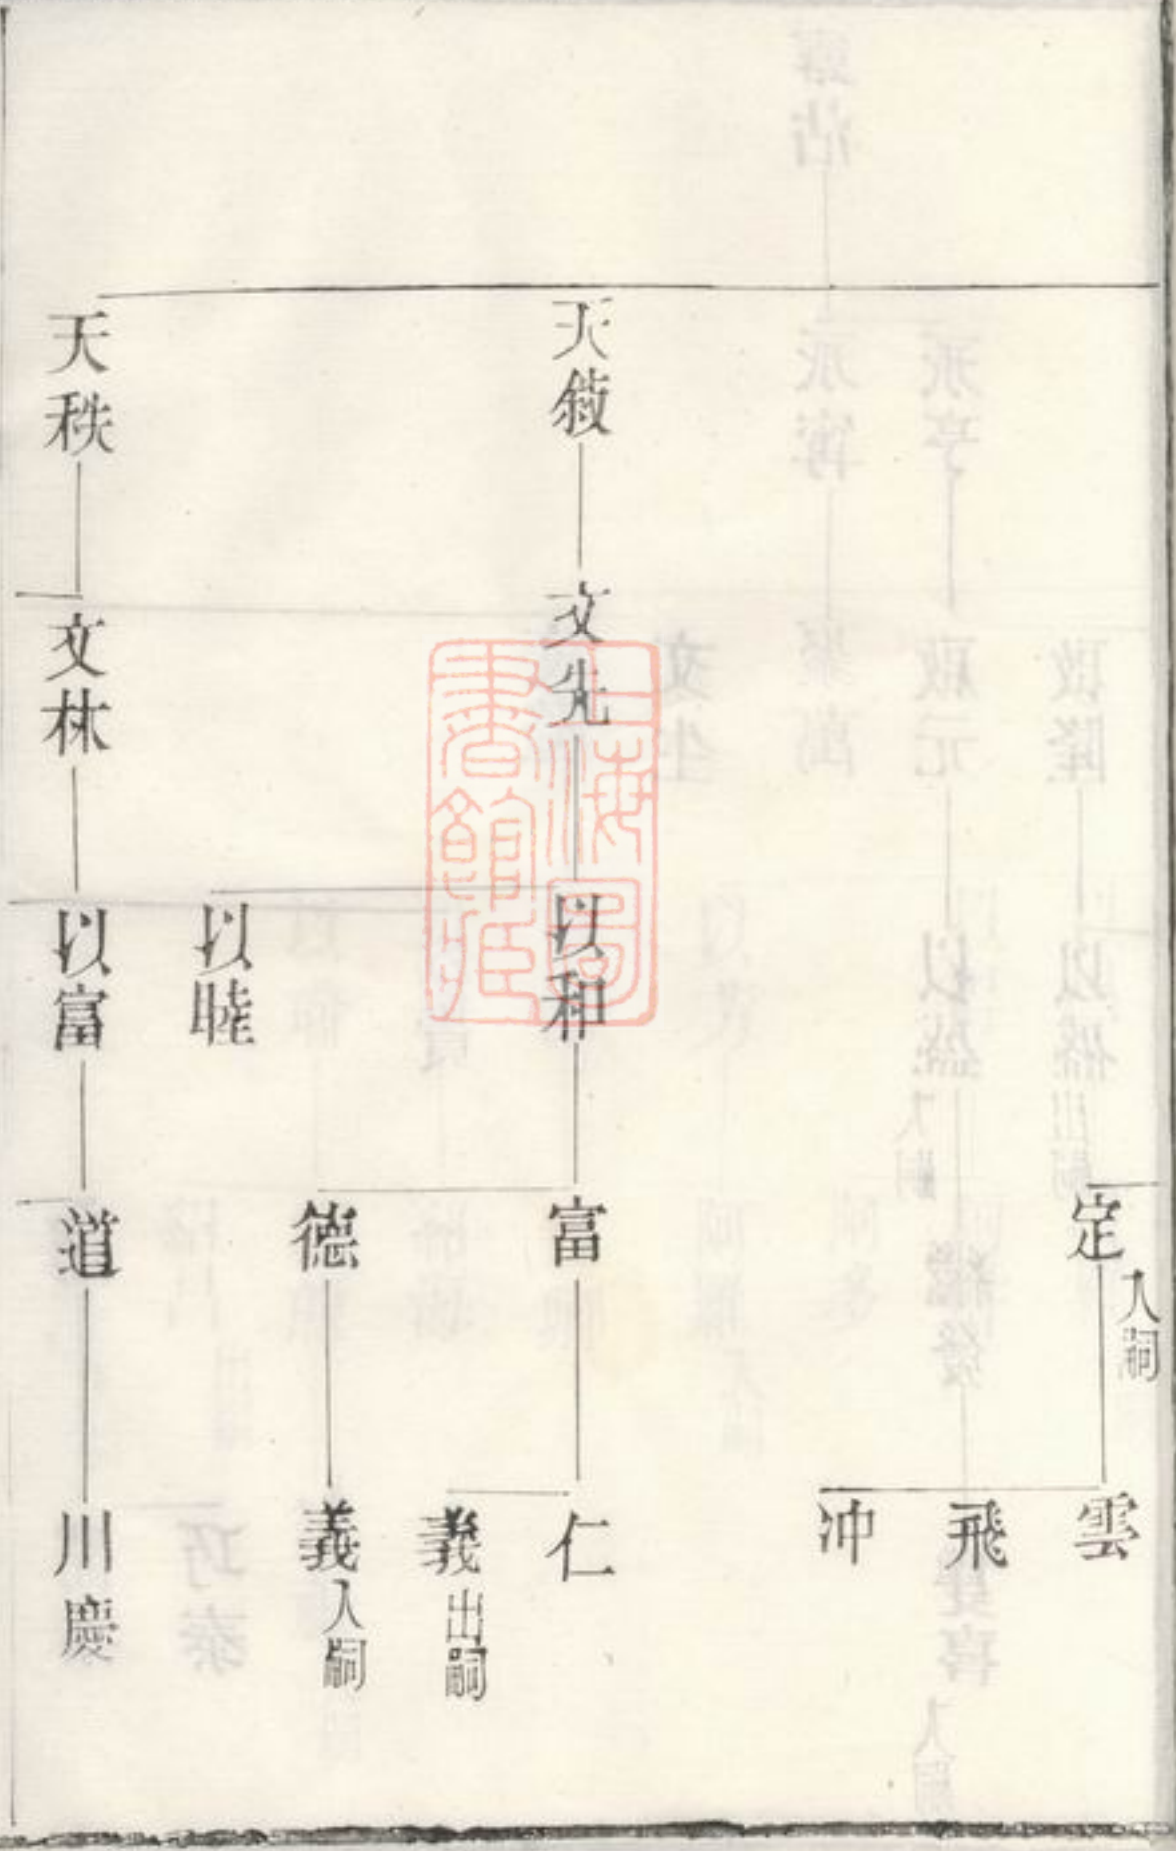 定入嗣
雲
飛
冲
天敘
文先
以和
富
仁
義出嗣
德
義入嗣
以睦
天秩
文林
以富
道
川慶
上海圖
書館藏